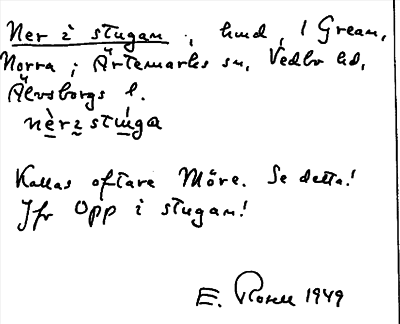 Ner i stugan, hmd, i Grean,
Norra; Ärtemarks sn, Vedbo hd,
Älvsborgs l.
nèrz stúga
Kallas oftare Möre. Se detta!
Jfr Opp i stugan!
E. Rosell 1949